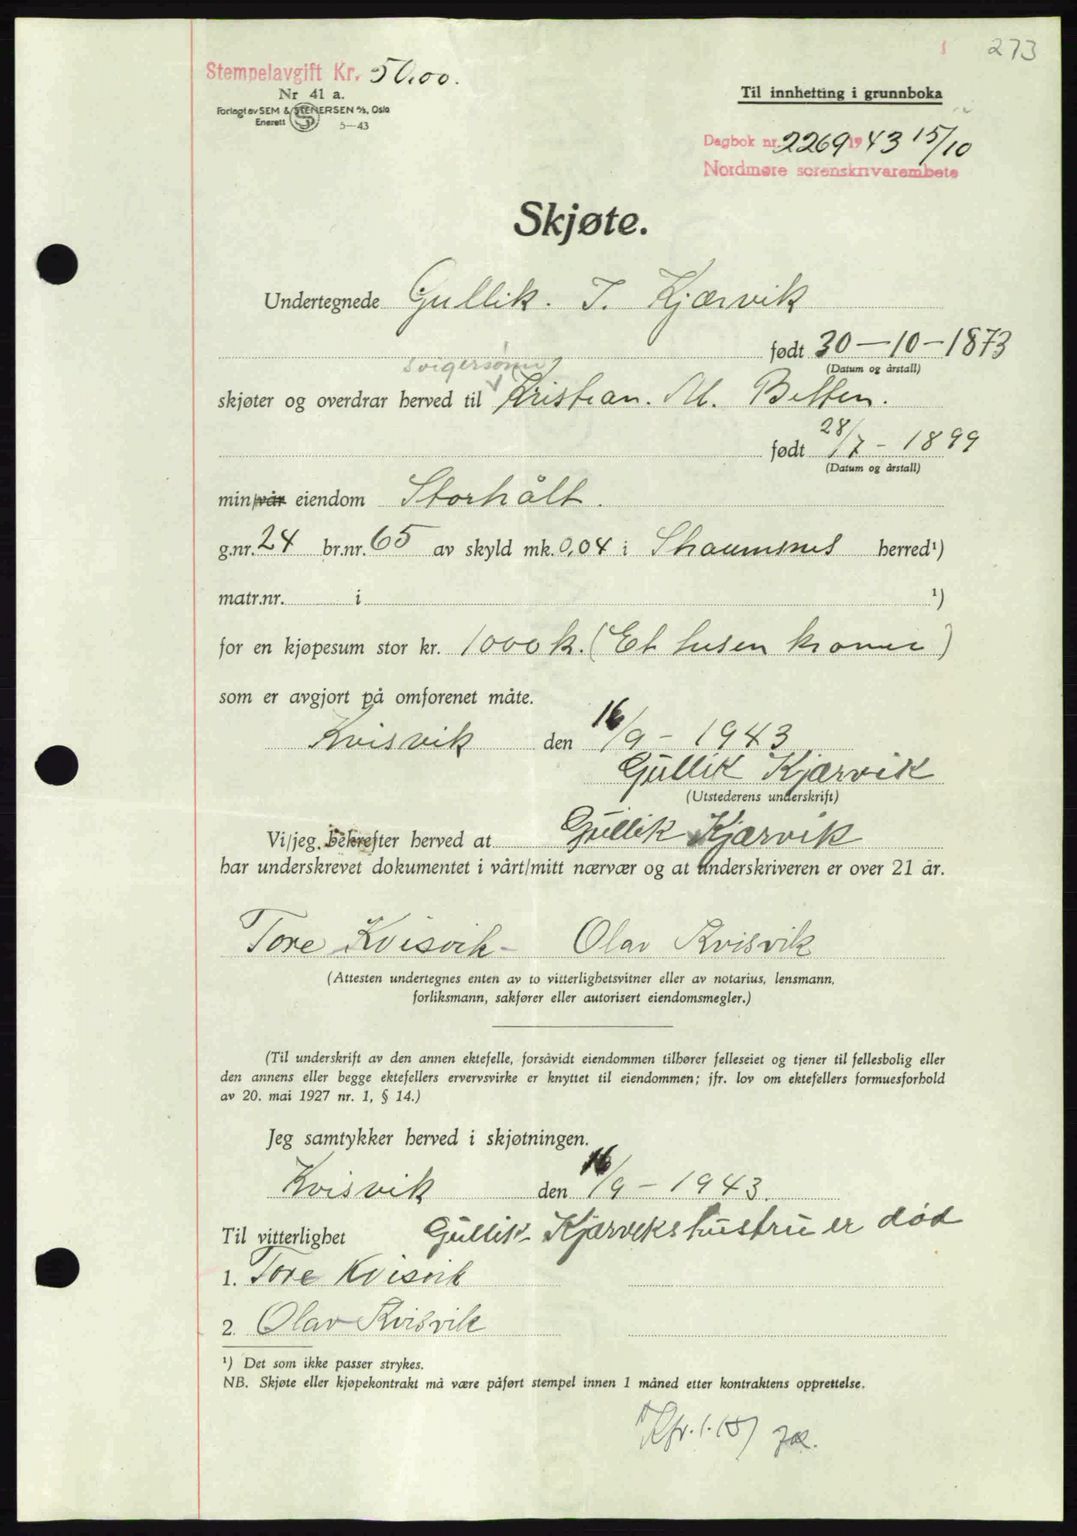 273
Stempelavgift Kr. 50.00.
Nr 41 a.
Forlagt av SEM & STENERSEN A/S, Oslo
Enerett 5—43
Til innhefting i grunnboka
Dagbok nr. 2269 1943 15/10
Nordmøre sorenskrivarembete
Skjøte.
Undertegnede Gullik. T. Kjærvik
født 30-10-1873
(Datum og årstall)
svigersønn
skjøter og overdrar herved til Kristian. M. Betten.
født 28/7-1899
(Datum og årstall)
min/vår eiendom Storhålt.
g.nr. 24 br.nr. 65 av skyld mk. 0,04 i Straumsnes herred¹)
matr.nr. i ¹)
for en kjøpesum stor kr. 1000 k. (Et tusen kroner)
som er avgjort på omforenet måte.
Kvisvik den 16/9-1943
Gullik Kjærvik
(Utstederens underskrift)
Vi/jeg bekrefter herved at Gullik Kjærvik
har underskrevet dokumentet i vårt/mitt nærvær og at underskriveren er over 21 år.
Tore Kvisvik- Olav Kvisvik
(Attesten undertegnes enten av to vitterlighetsvitner eller av notarius, lensmann,
forliksmann, sakfører eller autorisert eiendomsmegler.)
(Til underskrift av den annen ektefelle, forsåvidt eiendommen tilhører felleseiet og tjener til fellesbolig eller
den annens eller begge ektefellers ervervsvirke er knyttet til eiendommen; jfr. lov om ektefellers formuesforhold
av 20. mai 1927 nr. 1, § 14.)
Jeg samtykker herved i skjøtningen.
Kvisvik den 16/9-1943.
Til vitterlighet Gullik Kjærviks hustru er død
1. Tore Kvisvik
2. Olav Kvisvik
¹) Det som ikke passer strykes.
NB. Skjøte eller kjøpekontrakt må være påført stempel innen 1 måned etter kontraktens opprettelse.